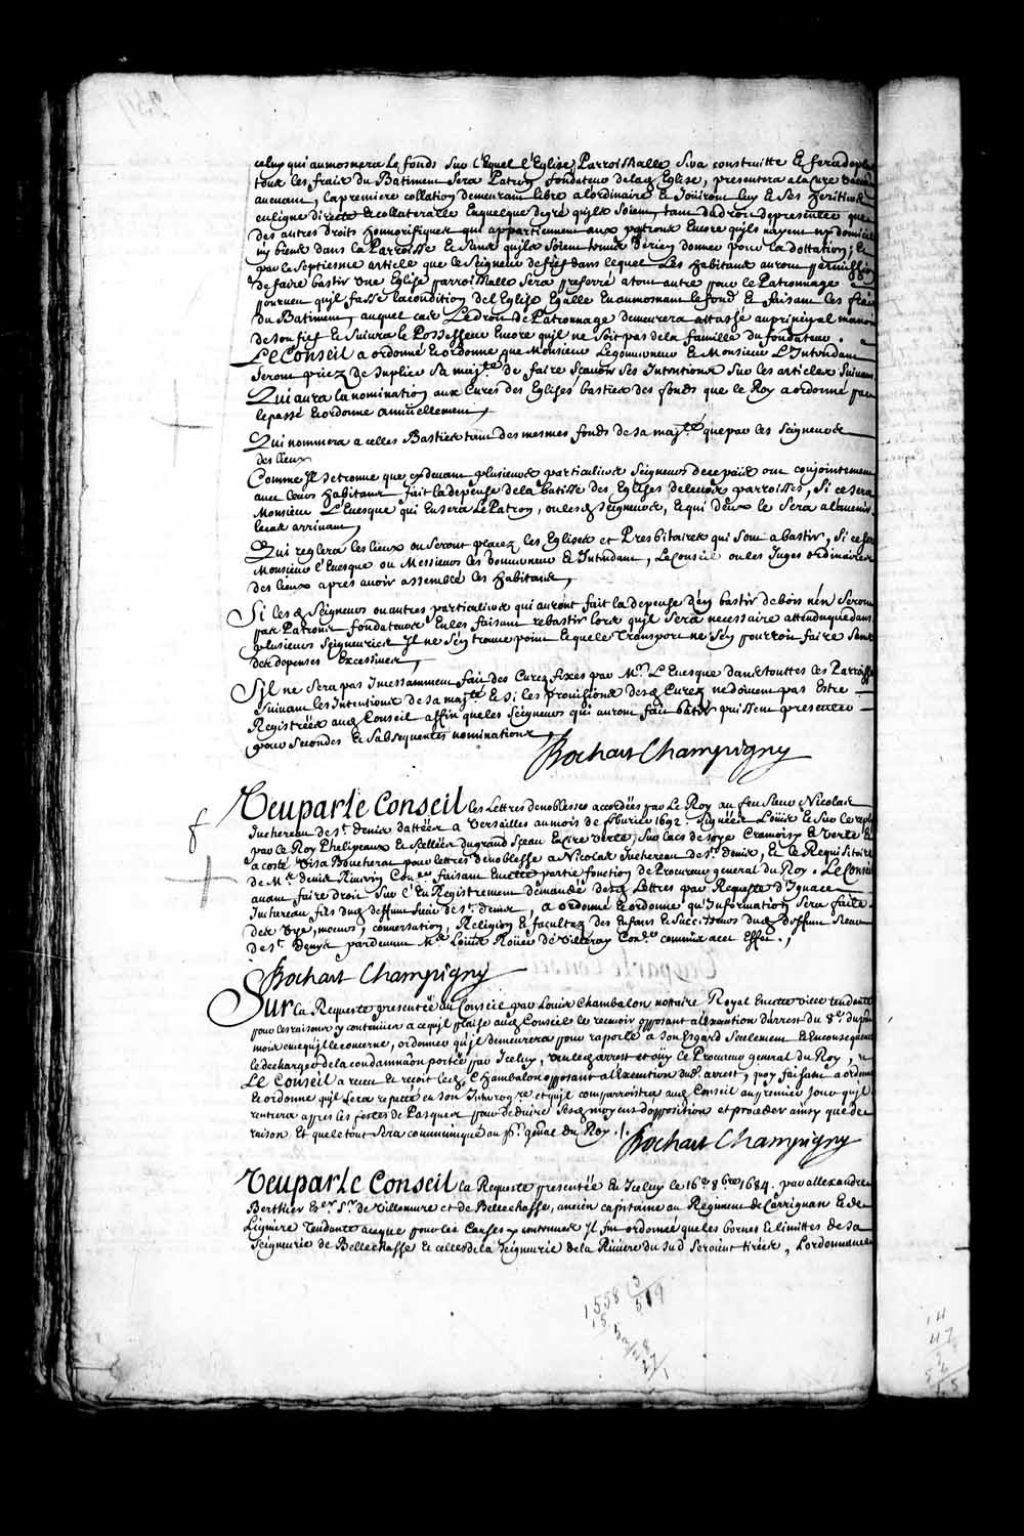 celuy qui aumosnera le fonds sur lequel l'Eglise Parroissialle sera construitte & fera de plus
tous les frais du Batiment sera Patron fondateur de lad Eglise, presentera a la Cure
avenant, la premiere collation demeurant libre a lordinaire & Jouiront luy & ses heritiers
en ligne directe & collateralle en quelque degré quils soient, tant du droit de presenter que
des autres droits honnorifiques qui appartiennent aux patrons Encore quils nayent ny domicile
ny biens dans la Parroisse & sans quils soient tenus de rien donner pour la dottation;
par le septiesme article que le Seigneur de fief dans lequel les habitans auront permission
de faire bastir une Eglise parroissialle sera preferré a tout autre pour le Patronnage
pourveu quil fasse la condition de l'Eglise Egalle En aumosnant le fond & faisant les frais
du Batiment, auquel cas Le droit de Patronnage demeurera attaché au principal manoir
de son fief & suivra le Possesseur Encore quil ne soit pas de la famille du fondateur.
Le Conseil a ordonné & ordonne que Monsieur Le gouverneur & Monsieur L'Intendant
seront priez de suplier sa maj.té de faire sçavoir ses Intentions sur les articles suivans
Qui aura la nomination aux Cures des Eglises basties des fonds que le Roy a ordonné par
le passé & ordonne annuellement,
Qui nommera a celles Basties tant des mesmes fonds de sa maj.té que par les seigneurs
des lieux
Comme Il se trouve que cy devant plusieurs particuliers seigneurs de ce pais ont conjointement
avec leurs habitans fait la depense de la batisse des Eglises de leurs parroisses, si ce sera
Monsieur L'Evesque qui En sera Le Patron, ou lesd seigneurs, & qui d'eux le sera a l'avenir
le cas arrivant,
Qui reglera les lieux ou seront placez les Eglises et Presbitaires qui sont a bastir, si ce sera
Monsieur l'Evesque ou Messieurs les Gouverneur & Intendant, Le Conseil ou les Juges ordinaires
des lieux apres avoir assemblé les habitans,
Si lesd Seigneurs ou autres particuliers qui auront fait la depense d'en bastir de bois nen seront
pas Patrons fondateurs En les faisant rebastir lors quil sera necessaire attendu que dans
plusieurs seigneuries Il ne sen trouve point & que le transport ne sen pourroit faire sans
des depenses Excessives,
Sil ne sera pas Incessamment fait des Curez fixes par M.r L'Evesque dans touttes les Parroisses
suivant les Intentions de sa maj.té & si les provisions desd Curez ne doivent pas Estre
Registrées aud Conseil affin que les Seigneurs qui auront fait batir puissent presenter
pour secondes & subsequentes nominations,
Bochart Champigny
Veu par le Conseil les Lettres de noblesse accordées par Le Roy au feu Sieur Nicolas
Juchereau de S.t Denis dattées a Versailles au mois de febvrier 1692. signées Louis & sur le reply
par le Roy Phelipeaux & scellées du grand sceau En cire verte, sur lacs de soye Cramoisy & verte &
a costé Visa Boucherat pour lettres de noblesse a Nicolas Juchereau de S.t Denis, & le Requisitoire
de M.e denis Riverin Con.er faisant En cette partie fonction de Procureur general du Roy. Le Conseil
avant faire droit sur l'En Registrement demandé desd Lettres par Requeste d'Ignace
Juchereau fils dud deffunt Sieur de S.t denis, a ordonné & ordonne qu'Information sera faite
des vye, moeurs, conversation, Religion & facultez des Enfans & successeurs dud deffunt sieur
de S.t Denys pardevant M.e Louis Roüer de Villeray Con.er commis a cet Effet.,
Bochart Champigny
Sur la Requeste presentée au Conseil par Louis Chambalon nottaire Royal En cette ville tendante
pour les raisons y contenües a ce quil plaise aud Conseil le recevoir opposant a l'execution d'arrest du 8.e du present
mois en ce quil le concerne, ordonner qu'il demeurera pour raporté a son Esgard seulement & En consequence
le decharger de la condamnaon portée par Iceluy, veu led arrest et oüy Le Procureur general du Roy,
Le Conseil a receu & reçoit led Chambalon opposant a l'Execution dud. arrest, quoy faisant a ordonné
& ordonne quil sera repeté en son Interrogre et quil comparroistra aud Conseil au premier jour quil
rentrera apres les festes de Pasques pour deduire sesd moyens d'opposition et proceder ainsy que de
raison Et que le tout sera communiqué au pr. gnal du Roy./.
Bochart Champigny
Veu par le Conseil la Requeste presentée En Iceluy le 16.e 8bre 1684. par allexandre
Berthier Es.er S.r de Villemure et de Bellechasse, ancien capitaine au Regiment de Carrignan & de
Ligniere tendante a ce que pour les Causes y contenues Il fut ordonné que les bornes & limittes de sa
Seigneurie de Bellechasse & celles de la Seigneurie de la Riviere du Sud seroient tirées, L'ordonnance